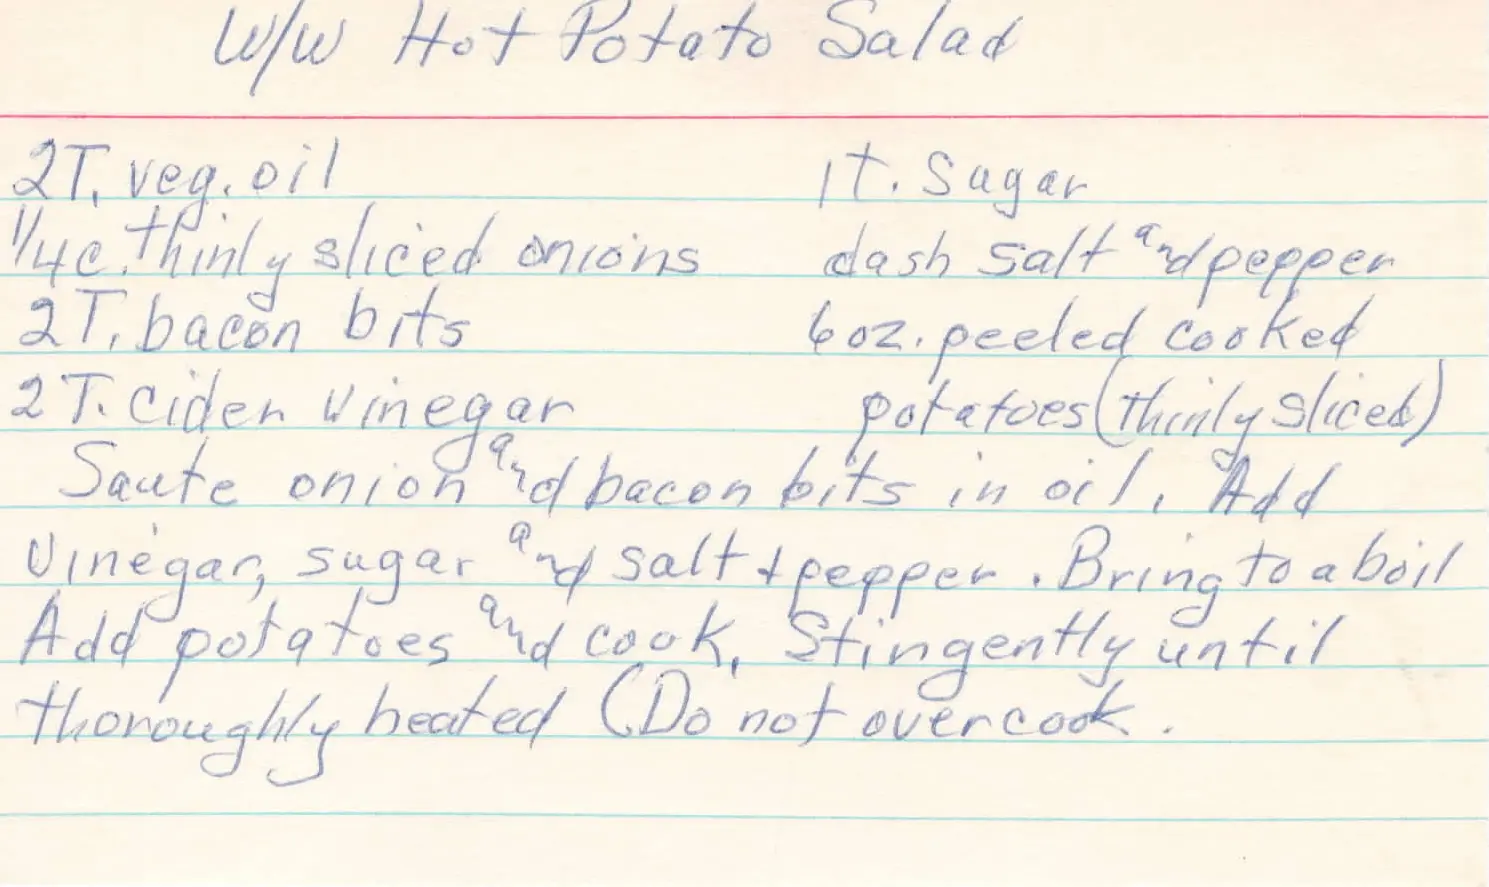 W/W Hot Potato Salad
2T. veg. oil 1t. Sugar
1/4c. thinly sliced onions dash salt and pepper
2T. bacon bits 6oz. peeled cooked
2T. cider vinegar potatoes (thinly sliced)
Saute onion and bacon bits in oil. Add
vinegar, sugar and salt + pepper. Bring to a boil
Add potatoes and cook, Stingently until
thoroughly heated (Do not overcook.